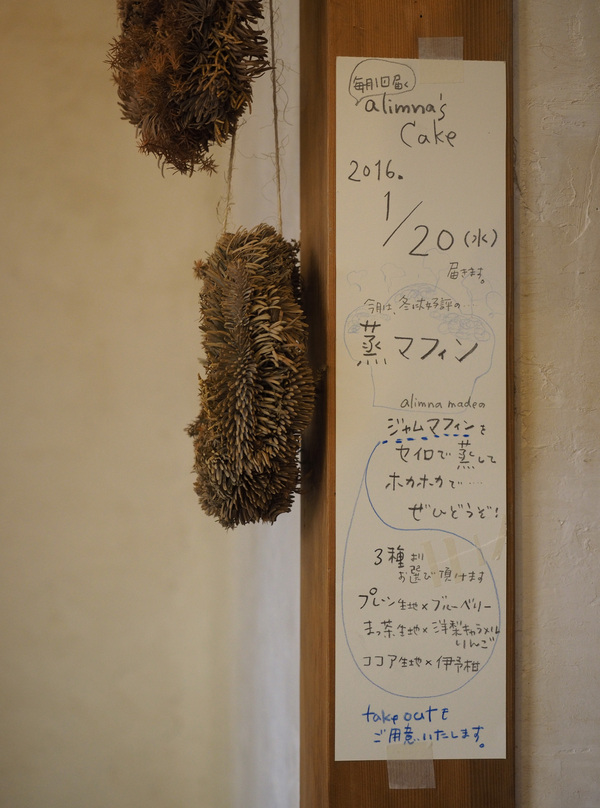 毎月1回届く
alimna's
Cake
2016.
1/20(水)
届きます。
今月は、冬は好評の
蒸マフィン
alimna madeの
ジャムマフィンを
セイロで蒸して
ホカホカで……
ぜひどうぞ!
3種より
お選び頂けます
プレーン生地×ブルーベリー
まっ茶生地×洋梨キャラメル
りんご
ココア生地×伊予柑
take outも
ご用意いたします。